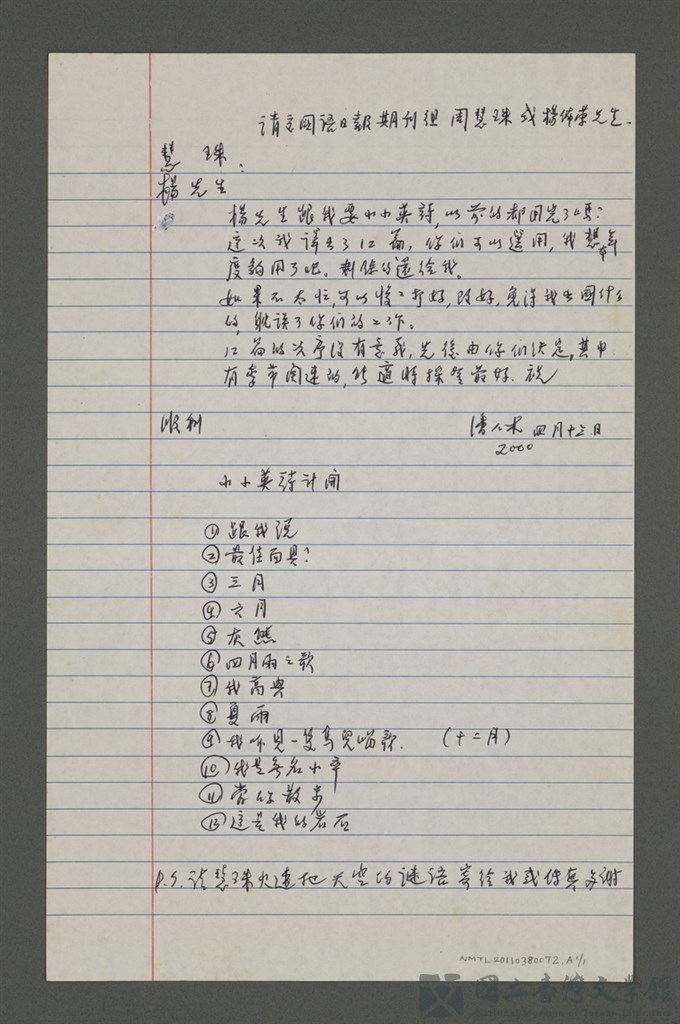 請交国語日報期刊組 周慧珠或楊佈榮先生.
慧珠:
楊先生
楊先生跟我要小小英詩,以前的都用完了嗎?
這次我譯出了12篇,你們可以選用,我想年
度夠用了吧。剩餘的還給我。
如果不太忙,可以慢慢打好,改好,免得我出國什么
的,耽误了你們的工作。
12篇的次序没有意義,先後由你們決定,其中
有季節関連的,能適時採登最好. 祝
順利
潘人木 四月十三日
2000
小小英詩計開
① 跟我说
② 最佳面具?
③ 三月
④ 六月
⑤ 灰熊
⑥ 四月雨之歌
⑦ 我高興
⑧ 夏雨
⑨ 我听見一隻鳥兒唱歌. (十二月)
⑩ 我是無名小卒
⑪ 當你散步
⑫ 這是我的岩石
P.S. 請慧珠火速把天空的謎語寄给我或传真多谢
NMTL20110380072.A1/1
國立臺灣文學館
National Museum of Taiwan Literature